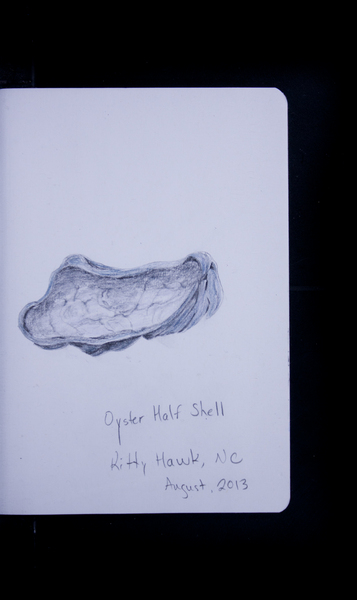 Oyster Half Shell
Kitty Hawk, NC
August, 2013